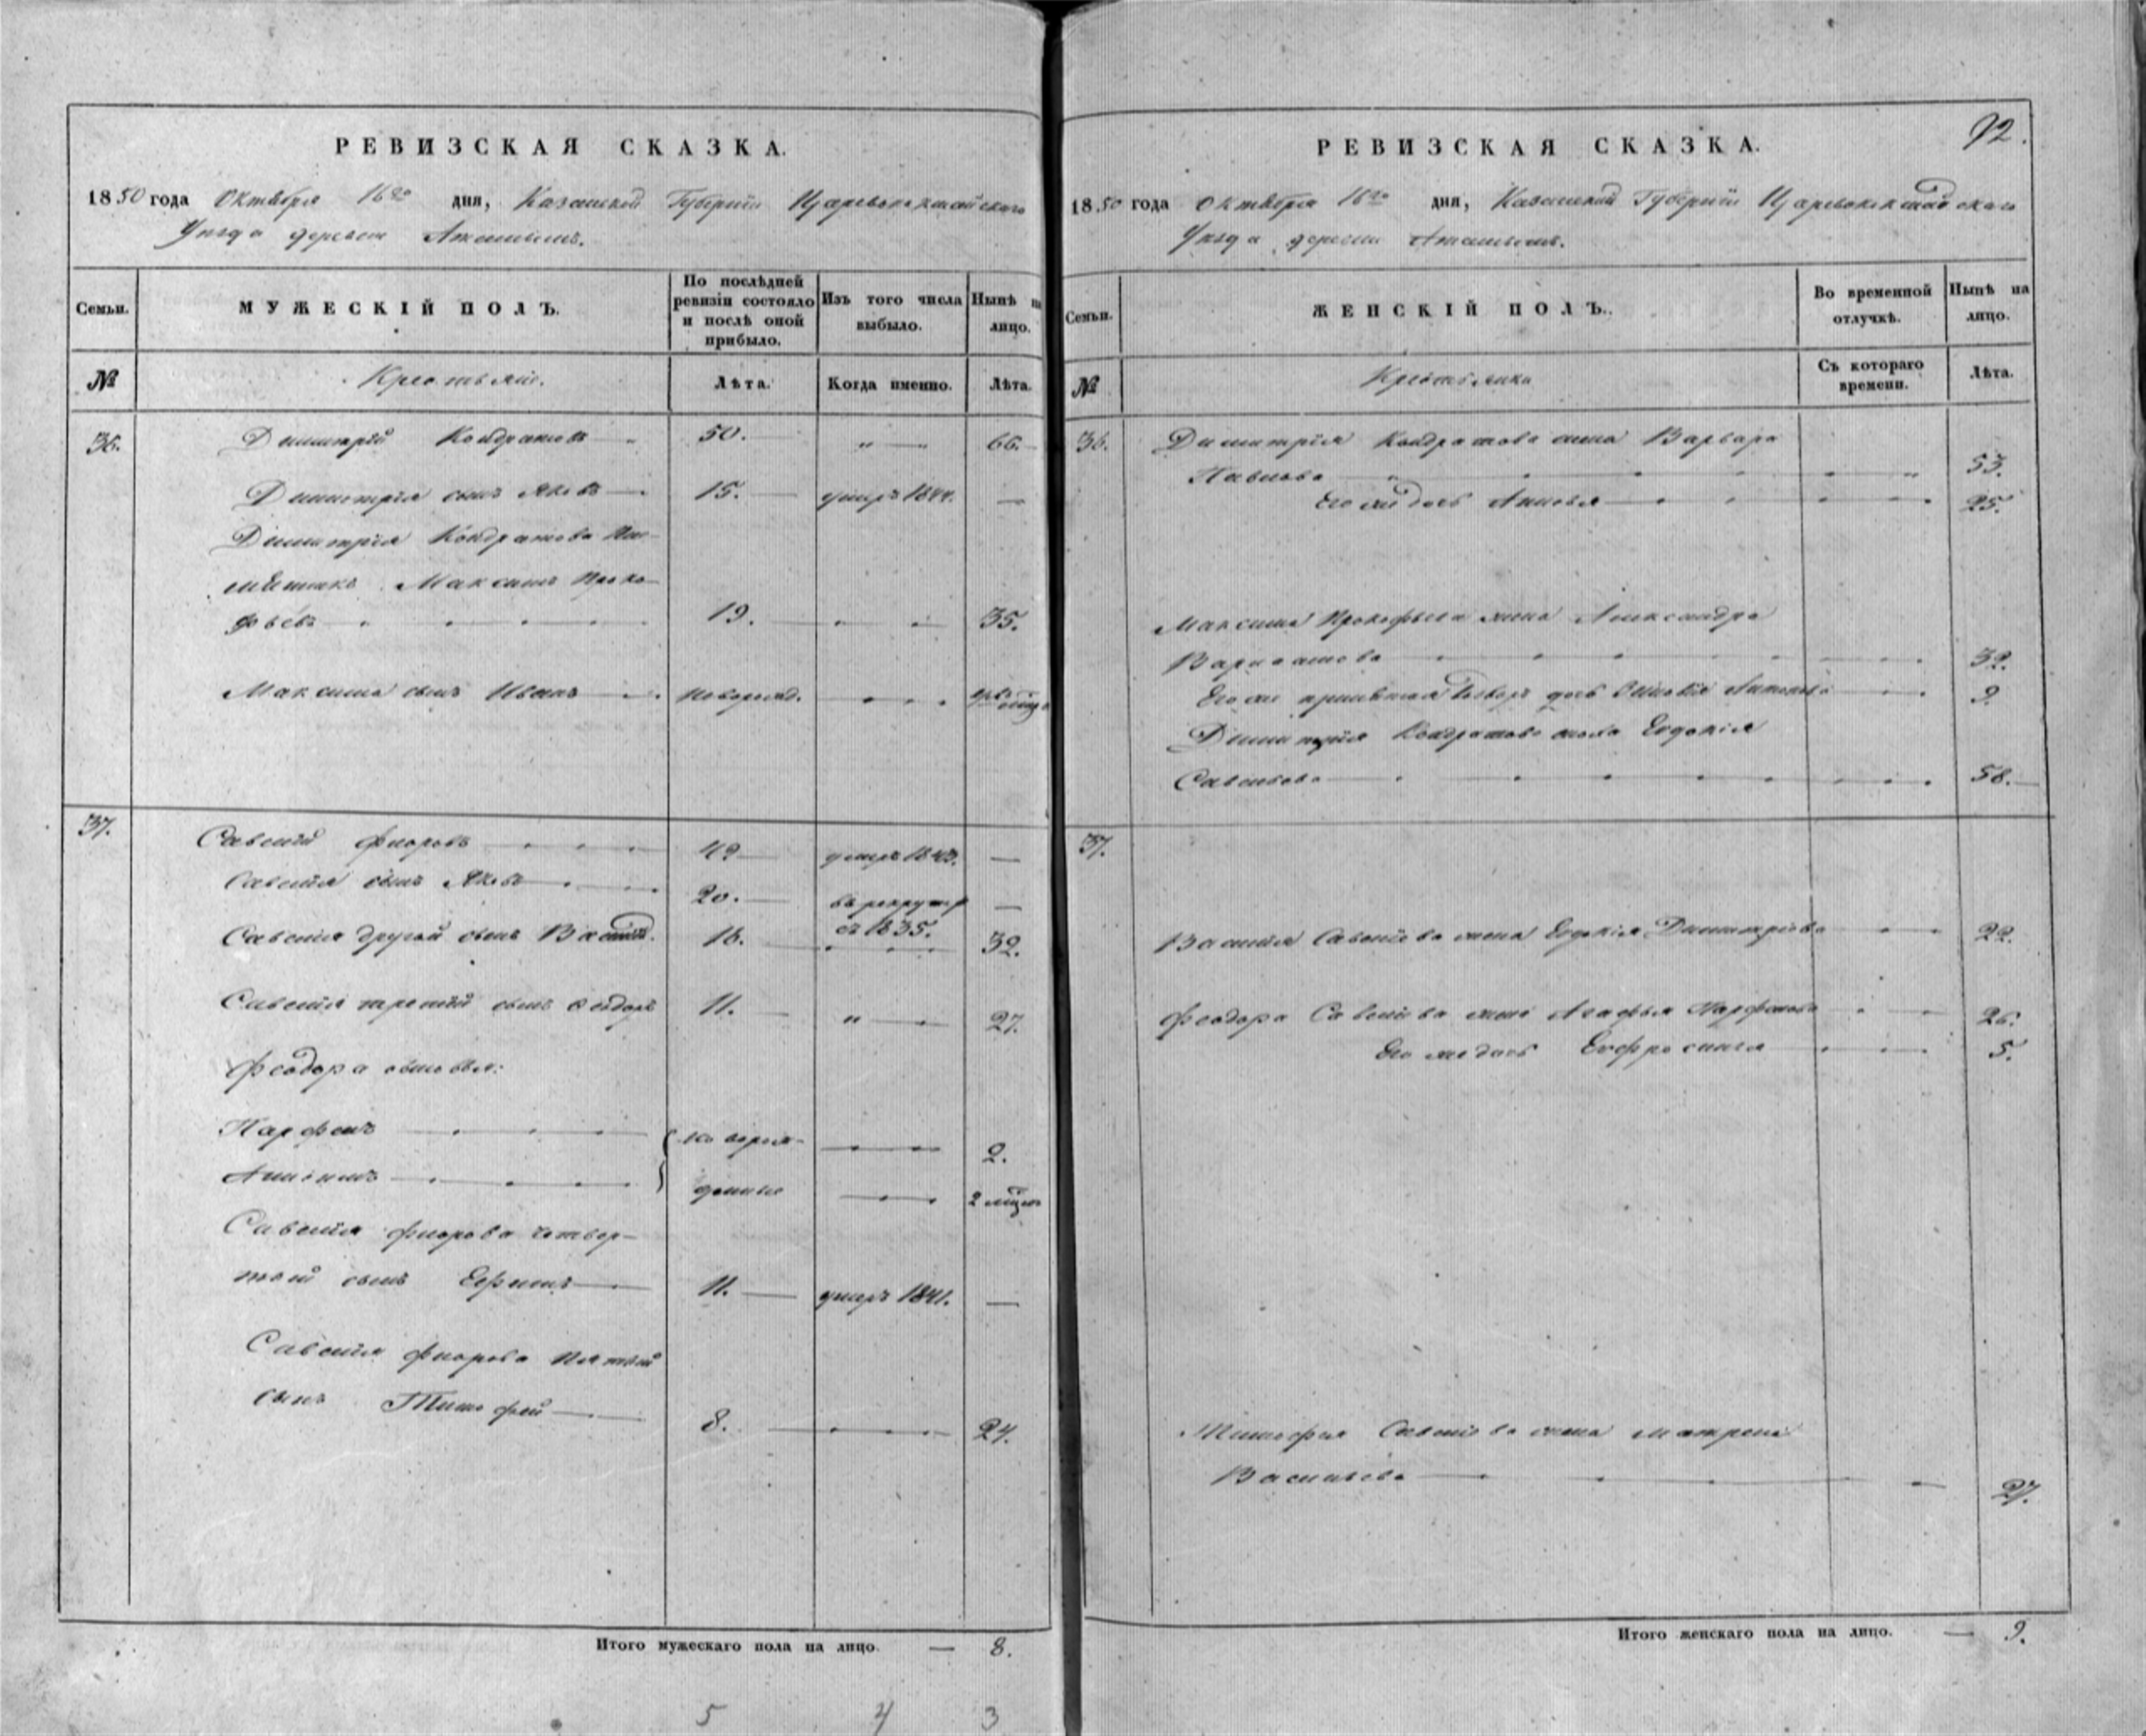 РЕВИЗСКАЯ СКАЗКА.
1850 года Октября 16го дня, Казанской Губернии Царевококшайскаго
Уѣзда деревни
Семьи.
МУЖЕСКІЙ ПОЛЪ.
По послѣдней ревизіи состояло и послѣ оной прибыло.
Изъ того числа выбыло.
Нынѣ на лицо.
№
Крестьяне.
Лѣта.
Когда именно.
Лѣта.
36.
Димитрій Кондратовъ 50. „ 66.
Димитрія сынъ Яковъ 15. умеръ 1844. —
Димитрія Кондратова Пле-
мянникъ Максимъ Проко-
фьевъ 19. 35.
Максима сынъ Иванъ новорожд.
37.
Савелій Флоровъ 49 умеръ 1843. —
Савелія сынъ Яковъ 20. въ рекрут. —
съ 1835.
Савелія другой сынъ Василій. 16. 32.
Савелія третій сынъ Феодоръ 11. „ 27.
Феодора сыновья:
Парфенъ новорож- 2.
денные 2 мѣсяц.
Савелія Флорова четвер-
той сынъ Ефимъ 11. умеръ 1841. —
Савелія Флорова пятой
сынъ Тимофей 8. 24.
Итого мужескаго пола на лицо. — 8.
5 4 3
92.
РЕВИЗСКАЯ СКАЗКА.
1850 года Октября 16го дня, Казанской Губерніи Царевококшайскаго
Уѣзда деревни
Семьи.
ЖЕНСКІЙ ПОЛЪ.
Во временной отлучкѣ.
Нынѣ на лицо.
№
Крестьянки
Съ котораго времени.
Лѣта.
36.
Димитрія Кондратова жена Варвара
Павлова 53.
Его же дочь 25.
Максима Прокофьева жена Александра
32.
Его же дочь 9.
Димитрія Кондратова Евдокія
Савельева 58.
37.
Василія Савельева жена Евдокія Димитріева 22.
Феодора Савельева жена Агафья Парфенова 26.
Его же дочь Ефросинья 5.
Тимофея Савельева жена Матрена
Васильева 27.
Итого женскаго пола на лицо. — 9.